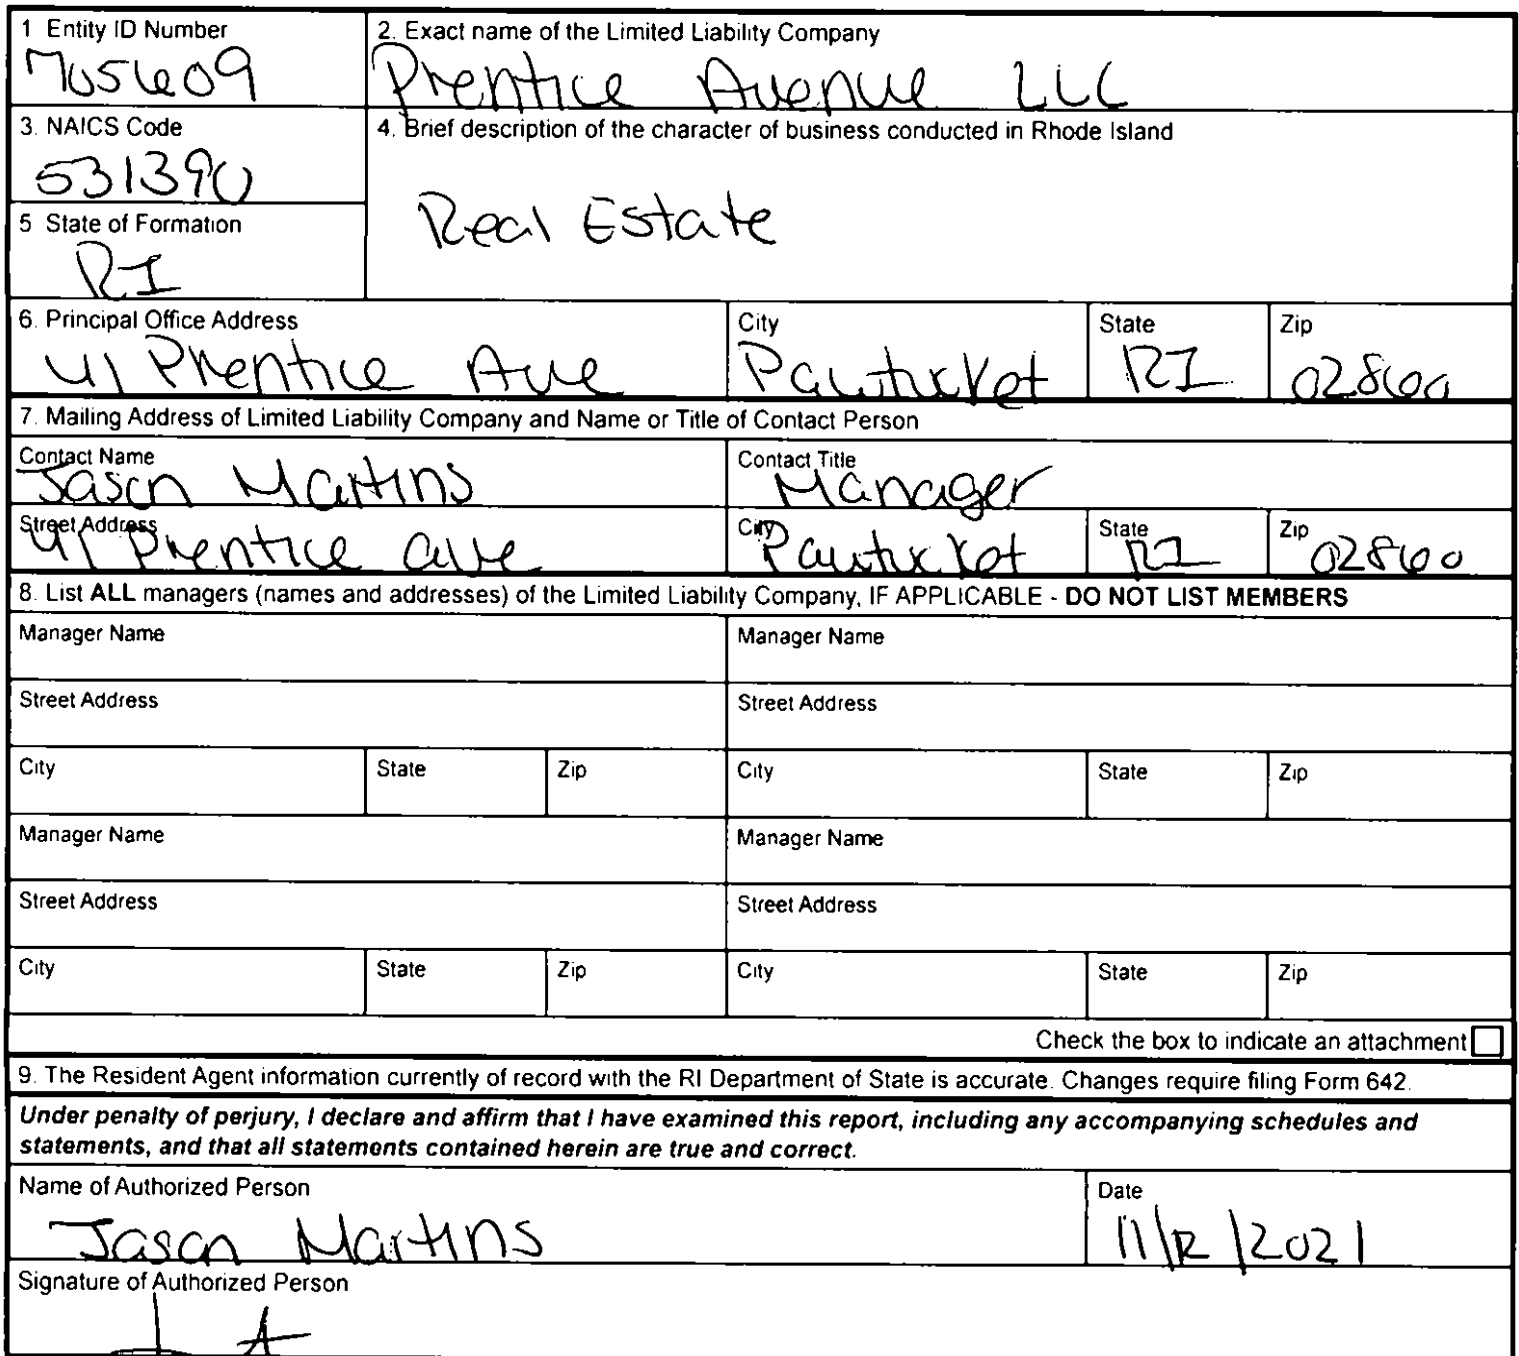 1 Entity ID Number
705609
2. Exact name of the Limited Liability Company
Prentice Avenue LLC
3. NAICS Code
531390
4. Brief description of the character of business conducted in Rhode Island
Real Estate
5 State of Formation
RI
6. Principal Office Address
41 Prentice Ave
City
Pawtucket
State
RI
Zip
02860
7. Mailing Address of Limited Liability Company and Name or Title of Contact Person
Contact Name
Jason Martins
Contact Title
Manager
Street Address
41 Prentice ave
City
Pawtucket
State
RI
Zip
02860
8. List ALL managers (names and addresses) of the Limited Liability Company, IF APPLICABLE - DO NOT LIST MEMBERS
Manager Name
Manager Name
Street Address
Street Address
City State Zip City State Zip
Manager Name
Manager Name
Street Address
Street Address
City State Zip City State Zip
Check the box to indicate an attachment
9. The Resident Agent information currently of record with the RI Department of State is accurate. Changes require filing Form 642.
Under penalty of perjury, I declare and affirm that I have examined this report, including any accompanying schedules and
statements, and that all statements contained herein are true and correct.
Name of Authorized Person
Jason Martins
Date
11/12/2021
Signature of Authorized Person